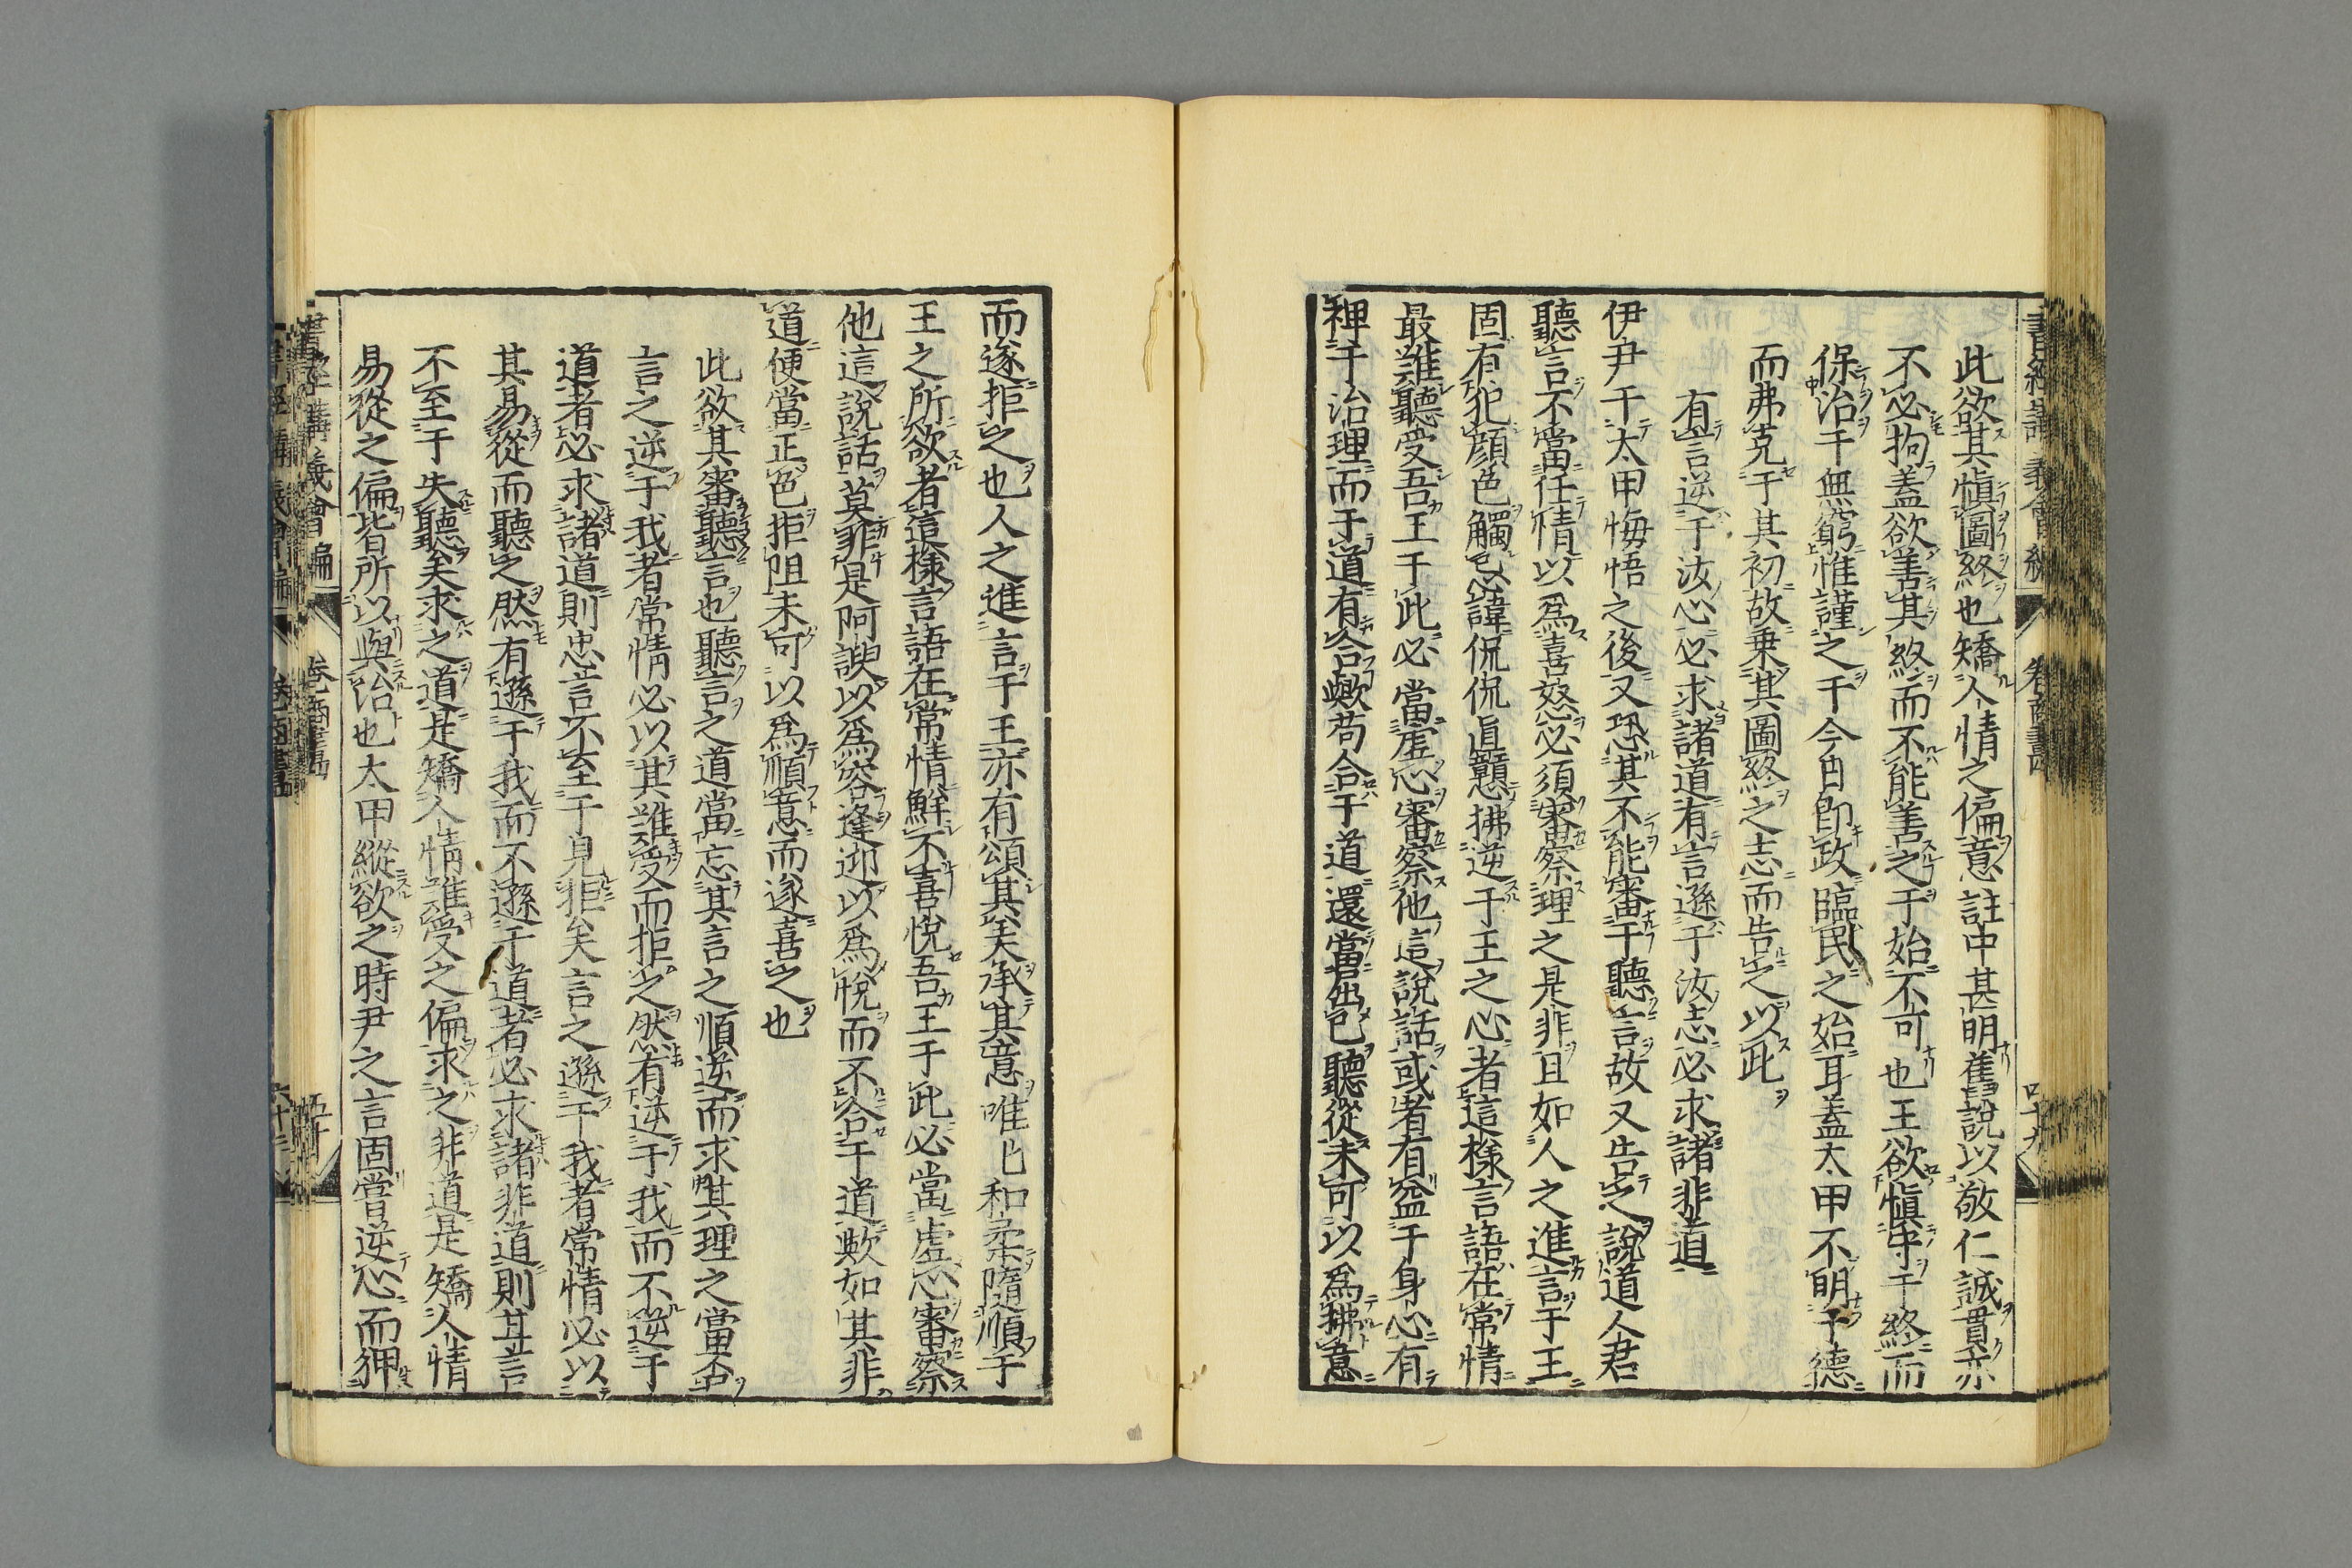 此欲其愼圖終也矯人情之偏意註中甚明舊說以敬仁誠貫亦
不必拘蓋欲善其終而不能善之于始不可也王欲愼守于終而
保治于無窮惟謹之于今日卽政臨民之始耳蓋太甲不明于德
而弗克于其初故乗其圖終之志而告之以此
有言逆于汝心必求諸道有言遜于汝志必求諸非道
伊尹于太甲悔悟之後又恐其不能審于聽言故又告之說道人君
聽言不當任情以爲喜怒必須審察理之是非且如人之進言于王
固有犯顔色觸忌諱侃侃直戇拂逆于王之心者這樣言語在常情
最難聽受吾王于此必當虗心審察他這說話或者有益于身心有
裨于治理而于道有合歟苟合于道還當屈己聽從未可以爲拂意
而遂拒之也人之進言于王亦有頌其美承其意唯唯和柔隨順于
王之所欲者這樣言語在常情鮮不喜悅吾王于此必當虗心審察
他這說話莫非是阿諛以爲容逢迎以爲悅而不合于道歟如其非
道便當正色拒阻未可以爲順意而遂喜之也
此欲其審聽言也聽言之道當忘其言之順逆而求其理之當否
言之逆于我者常情必以其難受而拒之然有逆于我而不逆于
道者必求諸道則忠言不至于見拒矣言之遜于我者常情必以
其易從而聽之然有遜于我而不遜于道者必求諸非道則甘言
不至于失聽矣求之道是矯人情難受之偏求之非道是矯人情
易從之偏皆所以與治也太甲縱欲之時尹之言固嘗逆心而狎
書經講義會編